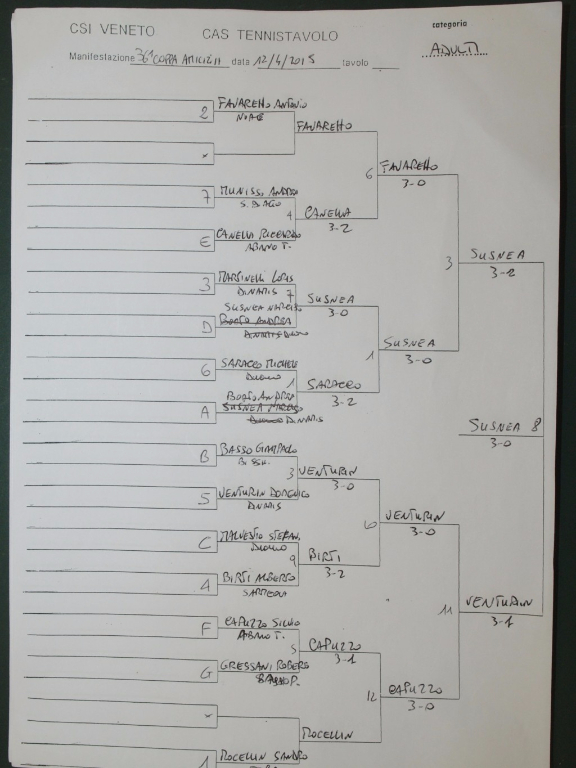 CSI VENETO CAS TENNISTAVOLO categoria
Manifestazione 36ª COPPA data 12/4/2015 tavolo ADULTI
2 FAVARETTO ANTONIO
NOAC
FAVARETTO
x
6 FAVARETTO
3-0
7 MUNISSI ANDREA
S. BIAGIO
4 CANELLA
3-2
E CANELLA RICCARDO
ABANO T.
3 SUSNEA
3-2
3 MARTINELLI LORIS
DINAMIS
7 SUSNEA
3-0
SUSNEA NARCISO
D BORTO ANDREA
1 SUSNEA
3-0
6 SARACCO MICHELE
DUOMO
1 SARACCO
3-2
BORTO ANDREA
A SUSNEA NARCISO
DUOMO DINAMIS
SUSNEA 8
3-0
B BASSO GIAMPAOLO
3 VENTURIN
3-0
5 VENTURIN DOMENICO
DINAMIS
10 VENTURIN
3-0
C MALVESTIO STEFAN.
DUOMO
9 BIRTI
3-2
4 BIRTI ALBERTO
11 VENTURIN
3-1
F CAPUZZO SILVIO
ABANO T.
5 CAPUZZO
3-1
G GRESSANI ROBERTO
12 CAPUZZO
3-0
x
MOCELLIN
1 MOCELLIN SANDRO